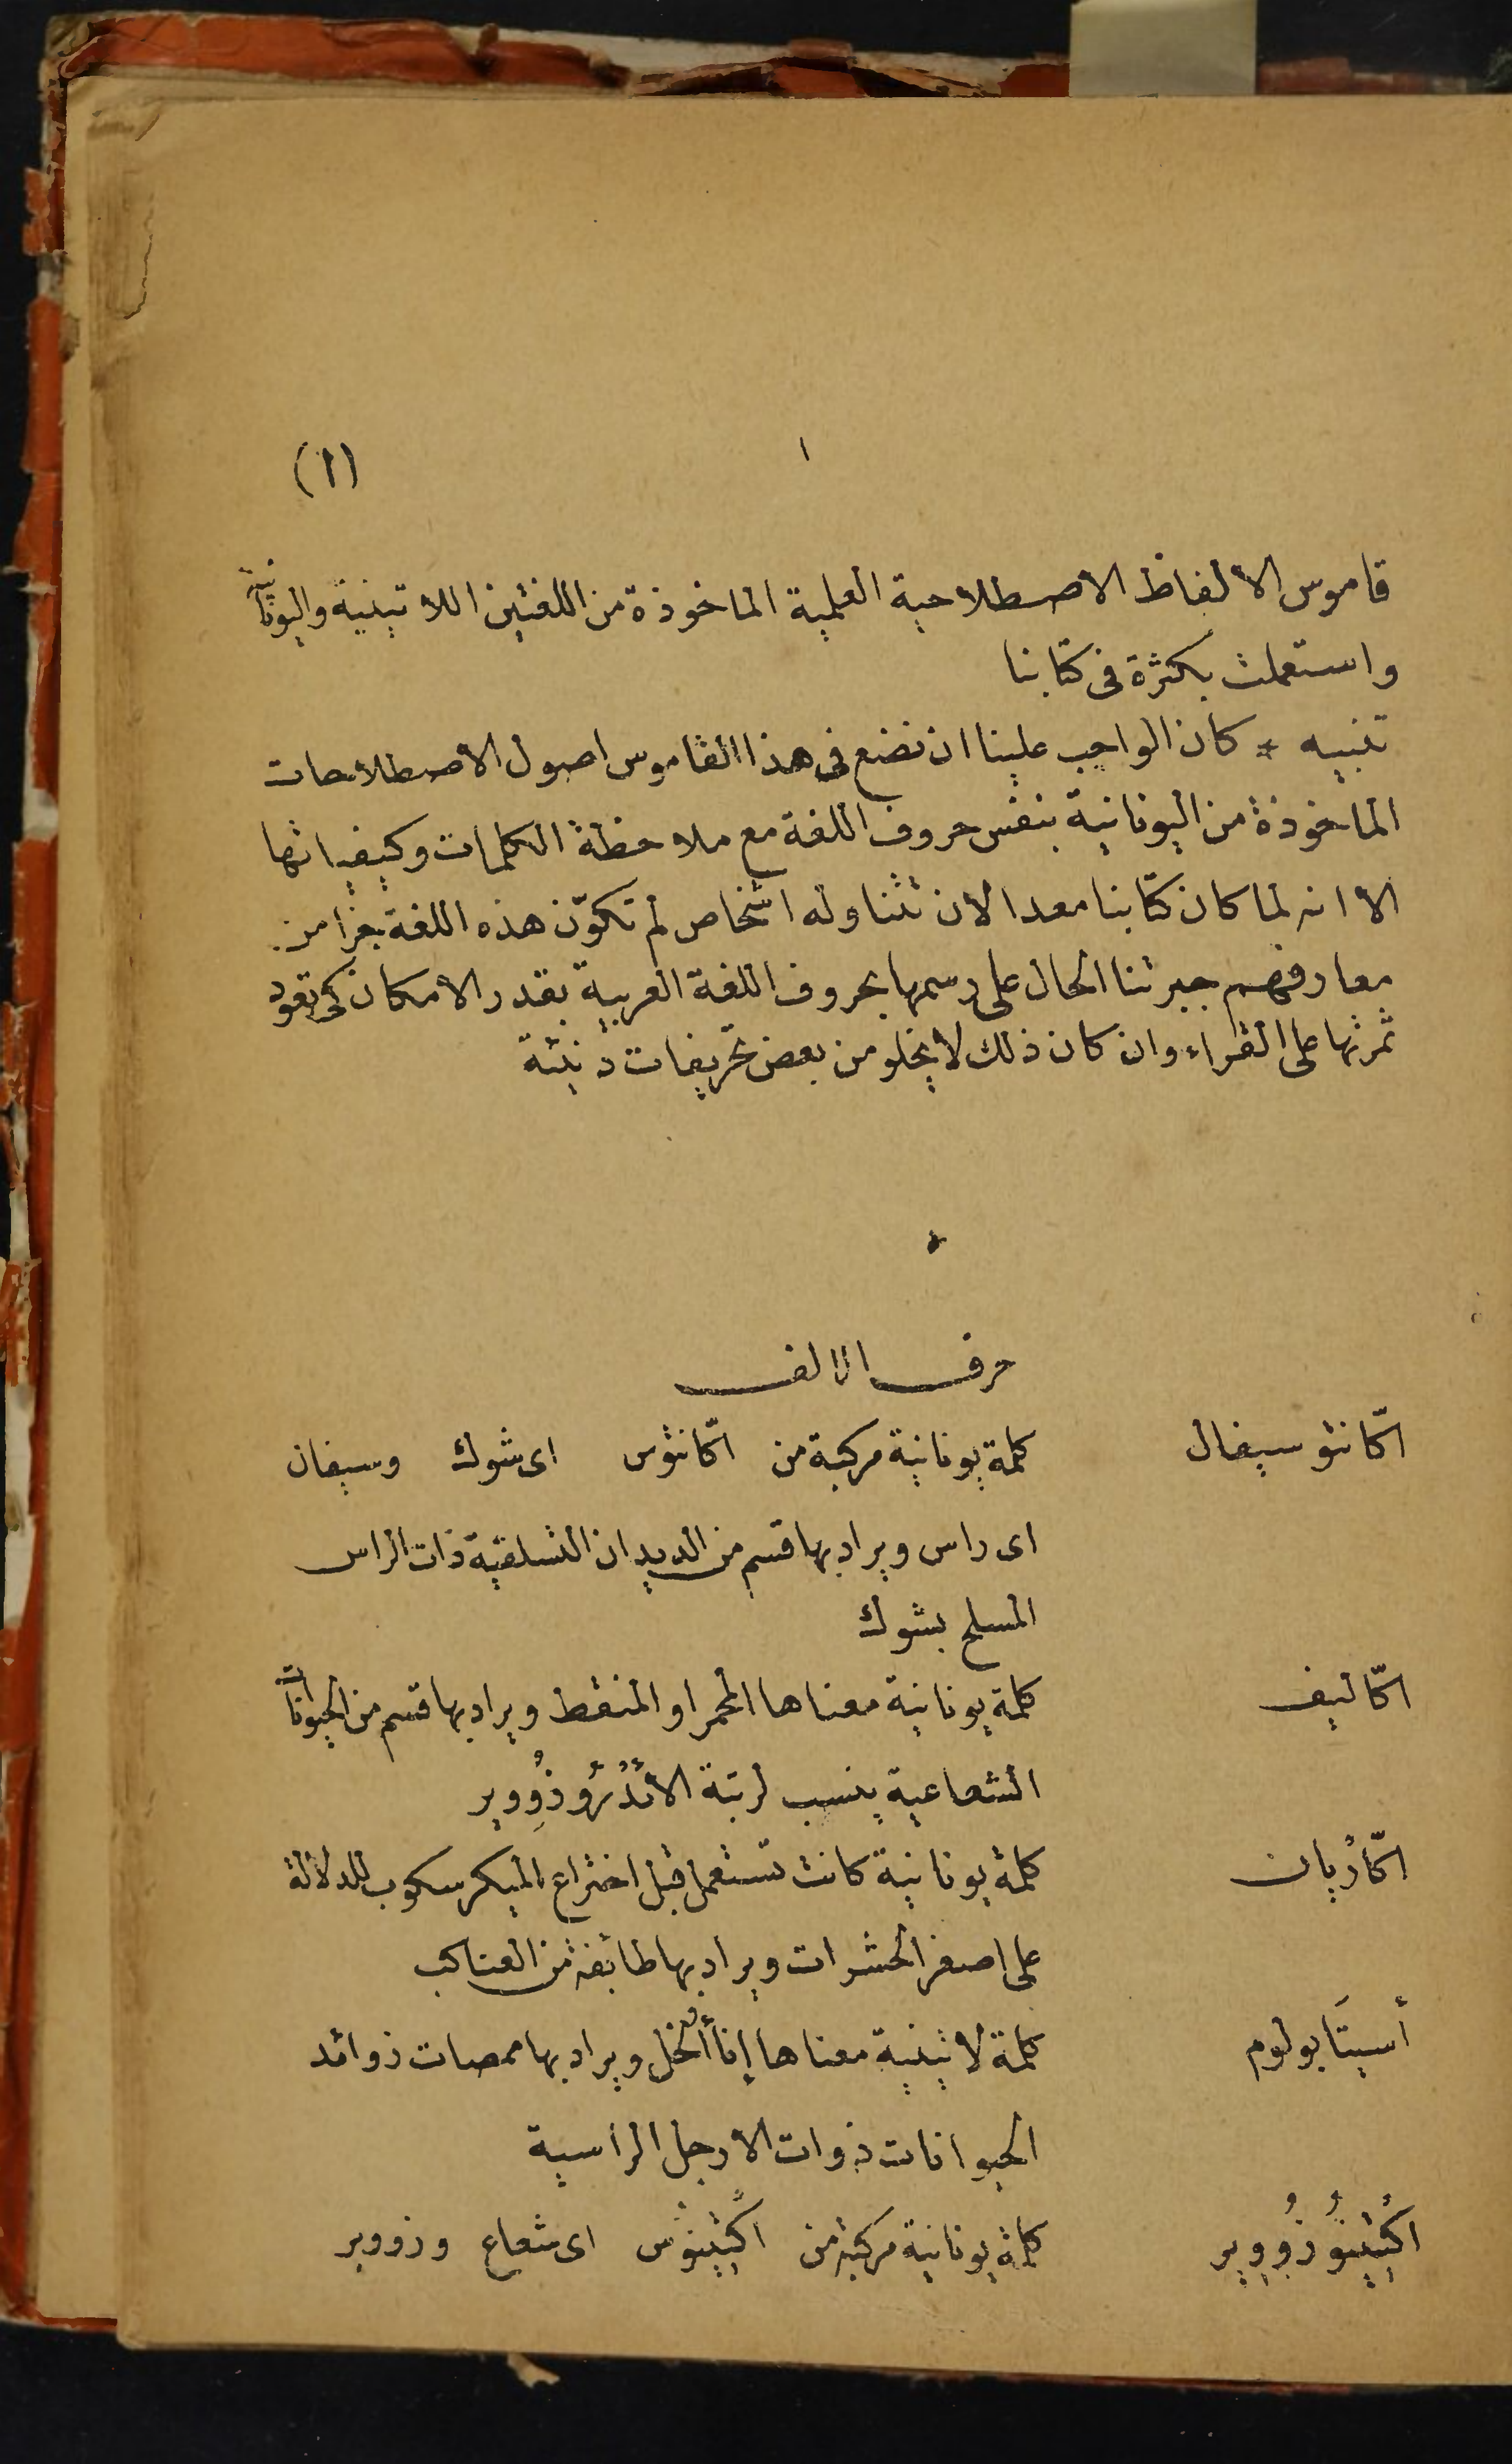 ١ (١)
قاموس الالفاظ الاصطلاحية العلمية الماخوذة من اللغتين اللاتينية واليونانية
واستعملت بكثرة فى كتابنا
تنبيه * كان الواجب علينا ان نضع فى هذا القاموس اصول الاصطلاحات
الماخوذة من اليونانية بنفس حروف اللغة مع ملاحظة الكلمات وكيفياتها
الا انه لما كان كتابنا معدا لان تتناوله اشخاص لم تكوّن هذه اللغة جزأ من
معارفهم جبرتنا الحال على رسمها بحروف اللغة العربية بقدر الامكان كى تعود
ثمرتها على القراء وان كان ذلك لا يخلو من بعض تحريفات دنيئة
حرف الالف
اكّانثوسيفال كلمة يونانية مركبة من اكّانثوس اى شوك وسيفان
اى راس ويراد بها قسم من الديدان التسلقية ذات الراس
المسلح بشوك
اكّاليف كلمة يونانية معناها المحمر او المنقط ويراد بها قسم من الحيوانات
الشعاعية ينسب لرتبة الأنْدُرُوزُووير
اكّاريان كلمة يونانية كانت تستعمل قبل اختراع الميكرسكوب للدلالة
على اصغر الحشرات ويراد بها طائفة من العناكب
أسيتَابولوم كلمة لاتينية معناها إناأ الخل ويراد بها ممصات زوائد
الحيوانات ذوات الارجل الراسية
اكْتِينُوزُووِير كلمة يونانية مركبة من اكْتِينوُس اى شعاع وزووير